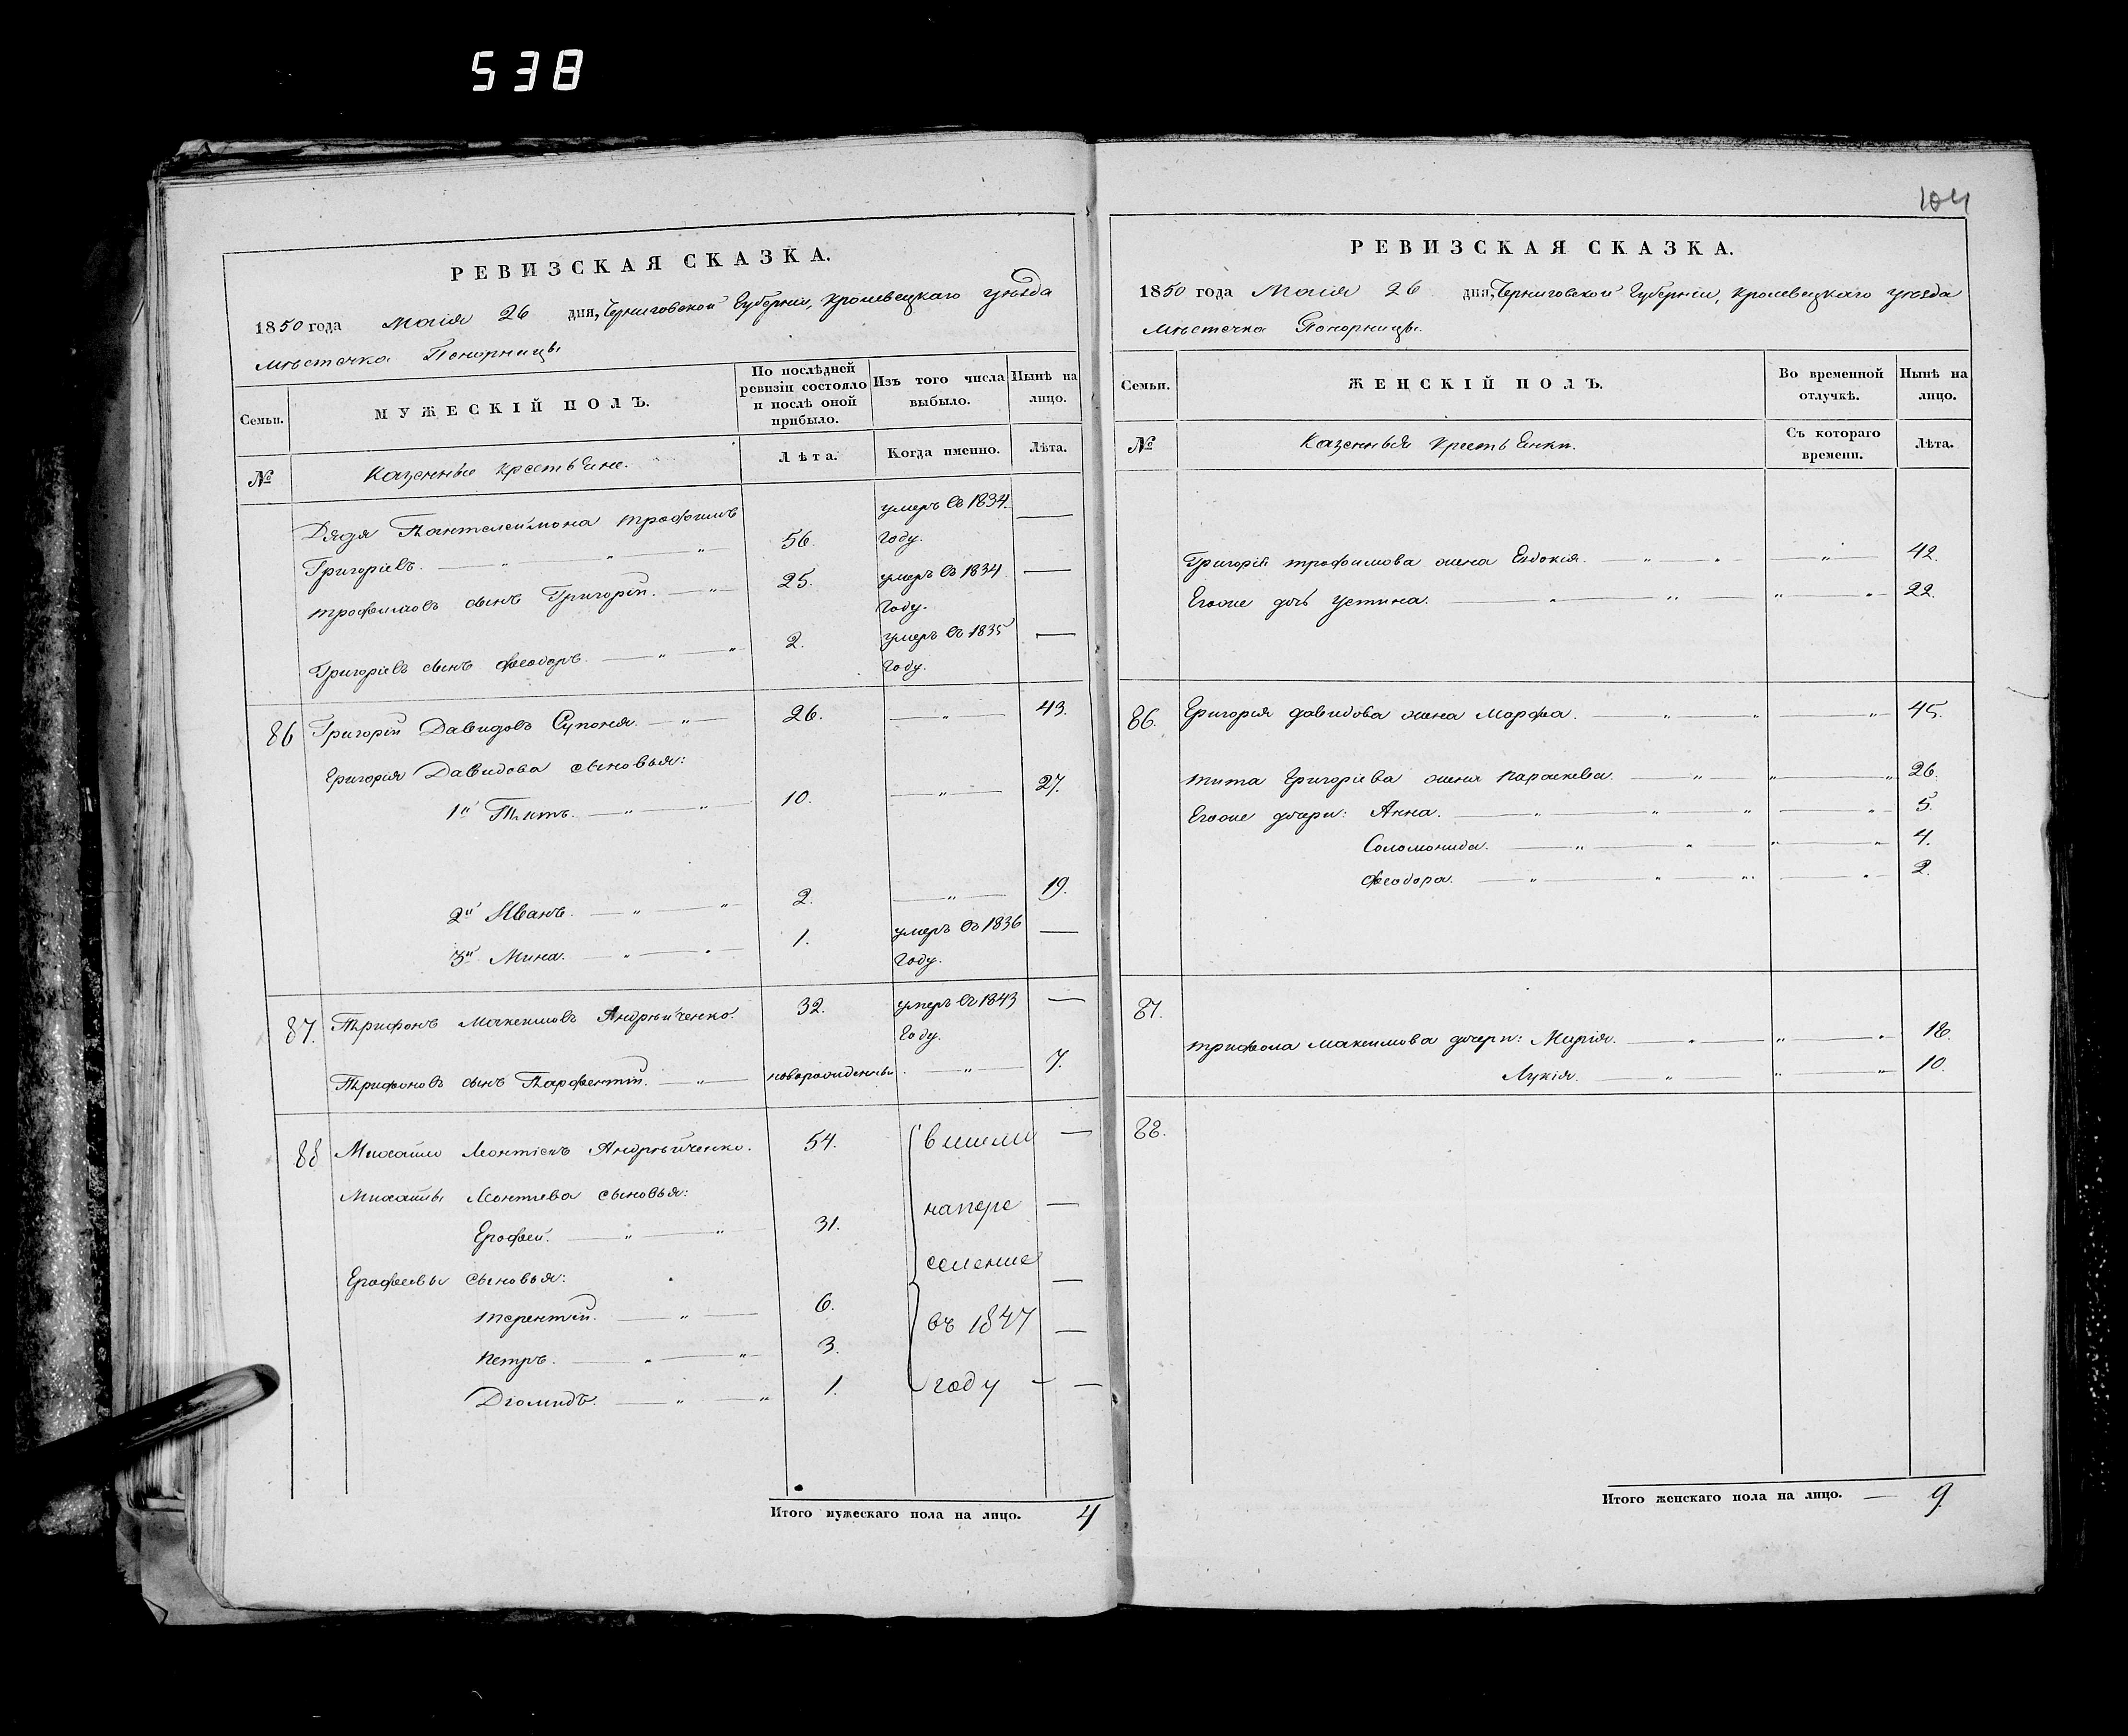 538
РЕВИЗСКАЯ СКАЗКА.
1850 года Маія 26 дня, Черниговской Губерніи, Кролевецкаго уѣзда
мѣстечка Понорницы
Семьи.
МУЖЕСКІЙ ПОЛЪ.
По послѣдней ревизіи состояло и послѣ оной прибыло.
Изъ того числа выбыло.
Нынѣ на лицо.
№
Казенные крестьяне.
Лѣта.
Когда именно.
Лѣта.
Дядя Пантелеймона Трофимъ умеръ въ 1834.
Григоріевъ. 56. году.
Трофимовъ сынъ Григорій. 25. умеръ въ 1834
году.
Григоріевъ сынъ Феодоръ. 2. умеръ въ 1835
году.
86 Григорій Давидовъ Супоня. 26. 43.
Григорія Давидова сыновья:
1й Титъ. 10. 27.
2й Иванъ. 2. 19.
3й Мина. 1. умеръ въ 1836
году.
87. Трифонъ Максимовъ Андрѣйченко. 32. умеръ въ 1843
году.
Трифоновъ сынъ Парфентій. новорожденны. 7.
88 Михайло Леонтіевъ Андрѣйченко. 54. вышли
Михайлы Леонтіева сыновья: напере
Ерофей. 31.
селение
Ерофеевы сыновья:
Терентій. 6. въ 1847
Петръ. 3.
Діомидъ. 1. году
Итого мужескаго пола на лицо. 4
104
РЕВИЗСКАЯ СКАЗКА.
1850 года Маія 26 дня, Черниговской Губерніи, Кролевецкаго уѣзда
мѣстечка Понорницы.
Семьи.
ЖЕНСКІЙ ПОЛЪ.
Во временной отлучкѣ.
Нынѣ на лицо.
№
Казенныя крестьянки.
Съ котораго времени.
Лѣта.
Григорій Трофимова жена Евдокія. 42.
Егоже дочь Устина. 22.
86. Григорія Давидова жена Марфа. 45.
Тита Григоріева жена Параскева. 26.
Егоже дочери: Анна. 5.
Соломонида. 4.
Феодора. 2.
87.
Трифона Максимова дочери: Марія. 18.
Лукія. 10.
88.
Итого женскаго пола на лицо. 9